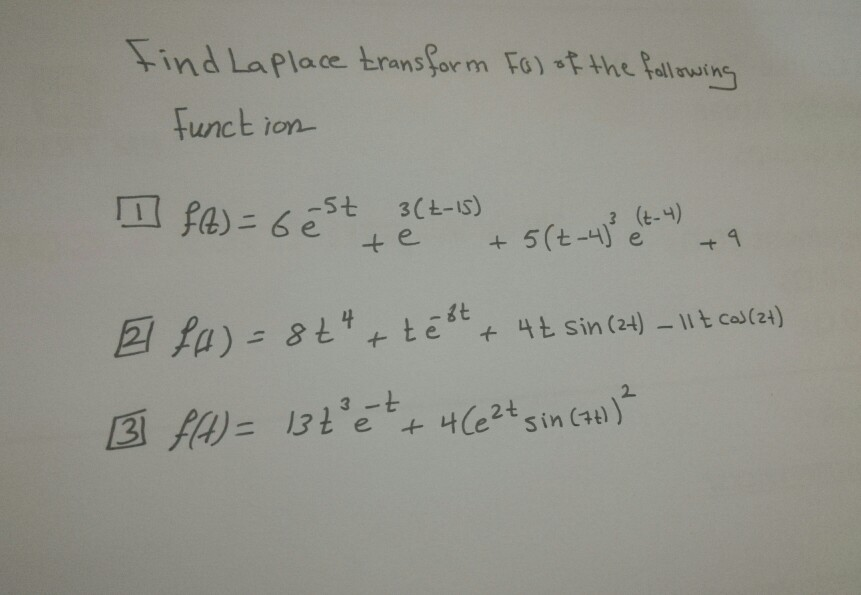 Find Laplace transform F(s) of the following
function
1 f(t) = 6e^{-5t} + e^{3(t-15)} + 5(t-4)^3 e^{(t-4)} + 9
2 f(t) = 8t^4 + te^{-8t} + 4t sin(2t) - 11t cos(2t)
3 f(t) = 13t^3 e^{-t} + 4(e^{2t} sin(7t))^2